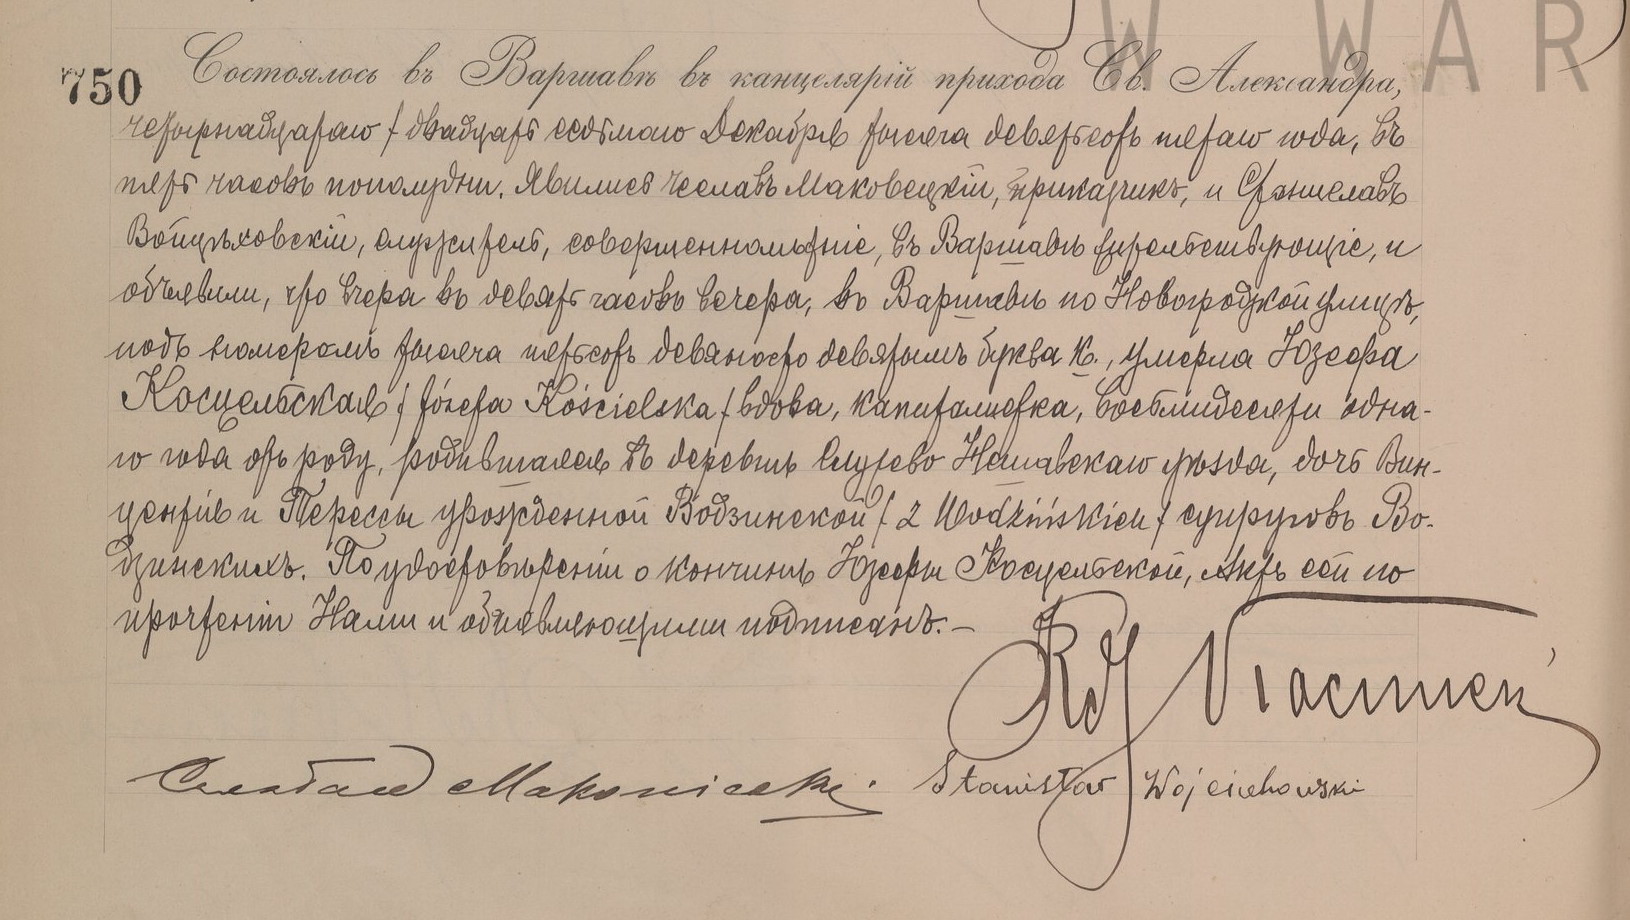 W WAR
750 Состоялось въ Варшавѣ въ канцелярій прихода Св. Александра,
четырнадцатаго / двадцать седьмаго Декабря тысяча девятьсотъ пятаго года, въ
пять часовъ пополудни. Явились Чеславъ Маковецкій, прикащикъ, и Станиславъ
Войцѣховскій, служитель, совершеннолѣтніе, въ Варшавѣ жительствующіе, и
объявили, что вчера въ девять часовъ вечера, въ Варшавѣ по Новогродзкой улицѣ,
подъ номеромъ тысяча пятьсотъ девяносто девятымъ буква К., умерла Юзефа
Косцельская / Józefa Kościelska / вдова, капиталистка, восьмидесяти одна-
го года отъ роду, родившаяся въ деревнѣ Служево Нешавскаго уѣзда, дочь Вин-
центія и Терессы урожденной Водзинской / z Wodzińskich / супруговъ Во-
дзинскихъ. По удостовѣреніи о кончинѣ Юзефы Косцельской, Актъ сей по
прочтеніи Нами и объявляющими подписанъ. –
Czesław Makowiecki. Stanisław Wojciechowski